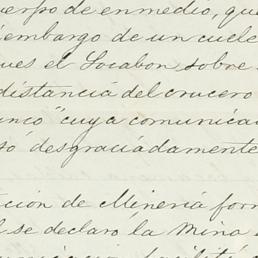 uerpo de enmedio, que
embargo de un cuelc
ues el Socabon sobre
distancia del crucero
nco" cuya comunica
só desgraciadamente
cion de Mineria for
l se declaró la Mina